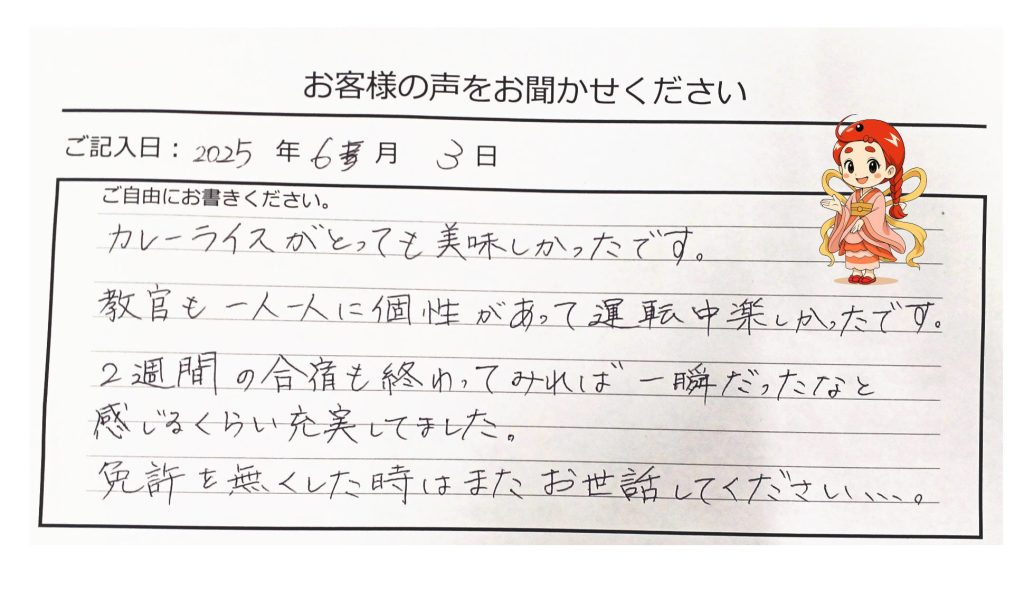 お客様の声をお聞かせください
ご記入日：2025 年 6 月 3 日
ご自由にお書きください。
カレーライスがとっても美味しかったです。
教官も一人一人に個性があって運転中楽しかったです。
2週間の合宿も終わってみれば一瞬だったなと
感じるくらい充実してました。
免許を無くした時はまたお世話してください、、、。